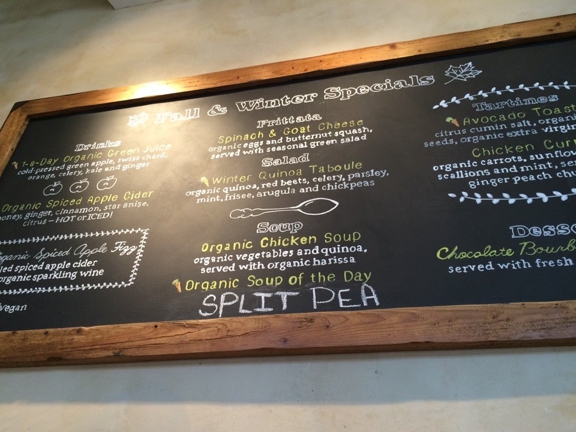 Fall & Winter Specials
Drinks
1-a-Day Organic Green Juice
cold-pressed green apple, swiss chard,
orange, celery, kale and ginger
Organic Spiced Apple Cider
honey, ginger, cinnamon, star anise,
citrus - HOT or ICED!
Organic Spiced Apple Fizz
spiced apple cider
organic sparkling wine
Vegan
Frittata
Spinach & Goat Cheese
organic eggs and butternut squash,
served with seasonal green salad
Salad
Winter Quinoa Taboule
organic quinoa, red beets, celery, parsley,
mint, frisee, arugula and chickpeas
Soup
Organic Chicken Soup
organic vegetables and quinoa,
served with organic harissa
Organic Soup of the Day
SPLIT PEA
Tartines
Avocado Toast
citrus cumin salt, organic
seeds, organic extra virgin
Chicken Curr
organic carrots, sunflow
scallions and mint, se
ginger peach chu
Desse
Chocolate Bourb
served with fresh